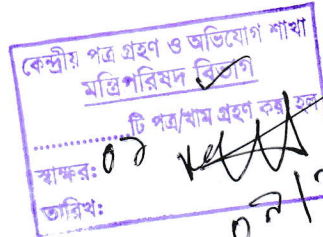 কেন্দ্রীয় পত্র গ্রহণ ও অভিযোগ শাখা
মন্ত্রিপরিষদ বিভাগ
..................টি পত্র/খাম গ্রহণ করা হল
স্বাক্ষর: ০১
তারিখ: